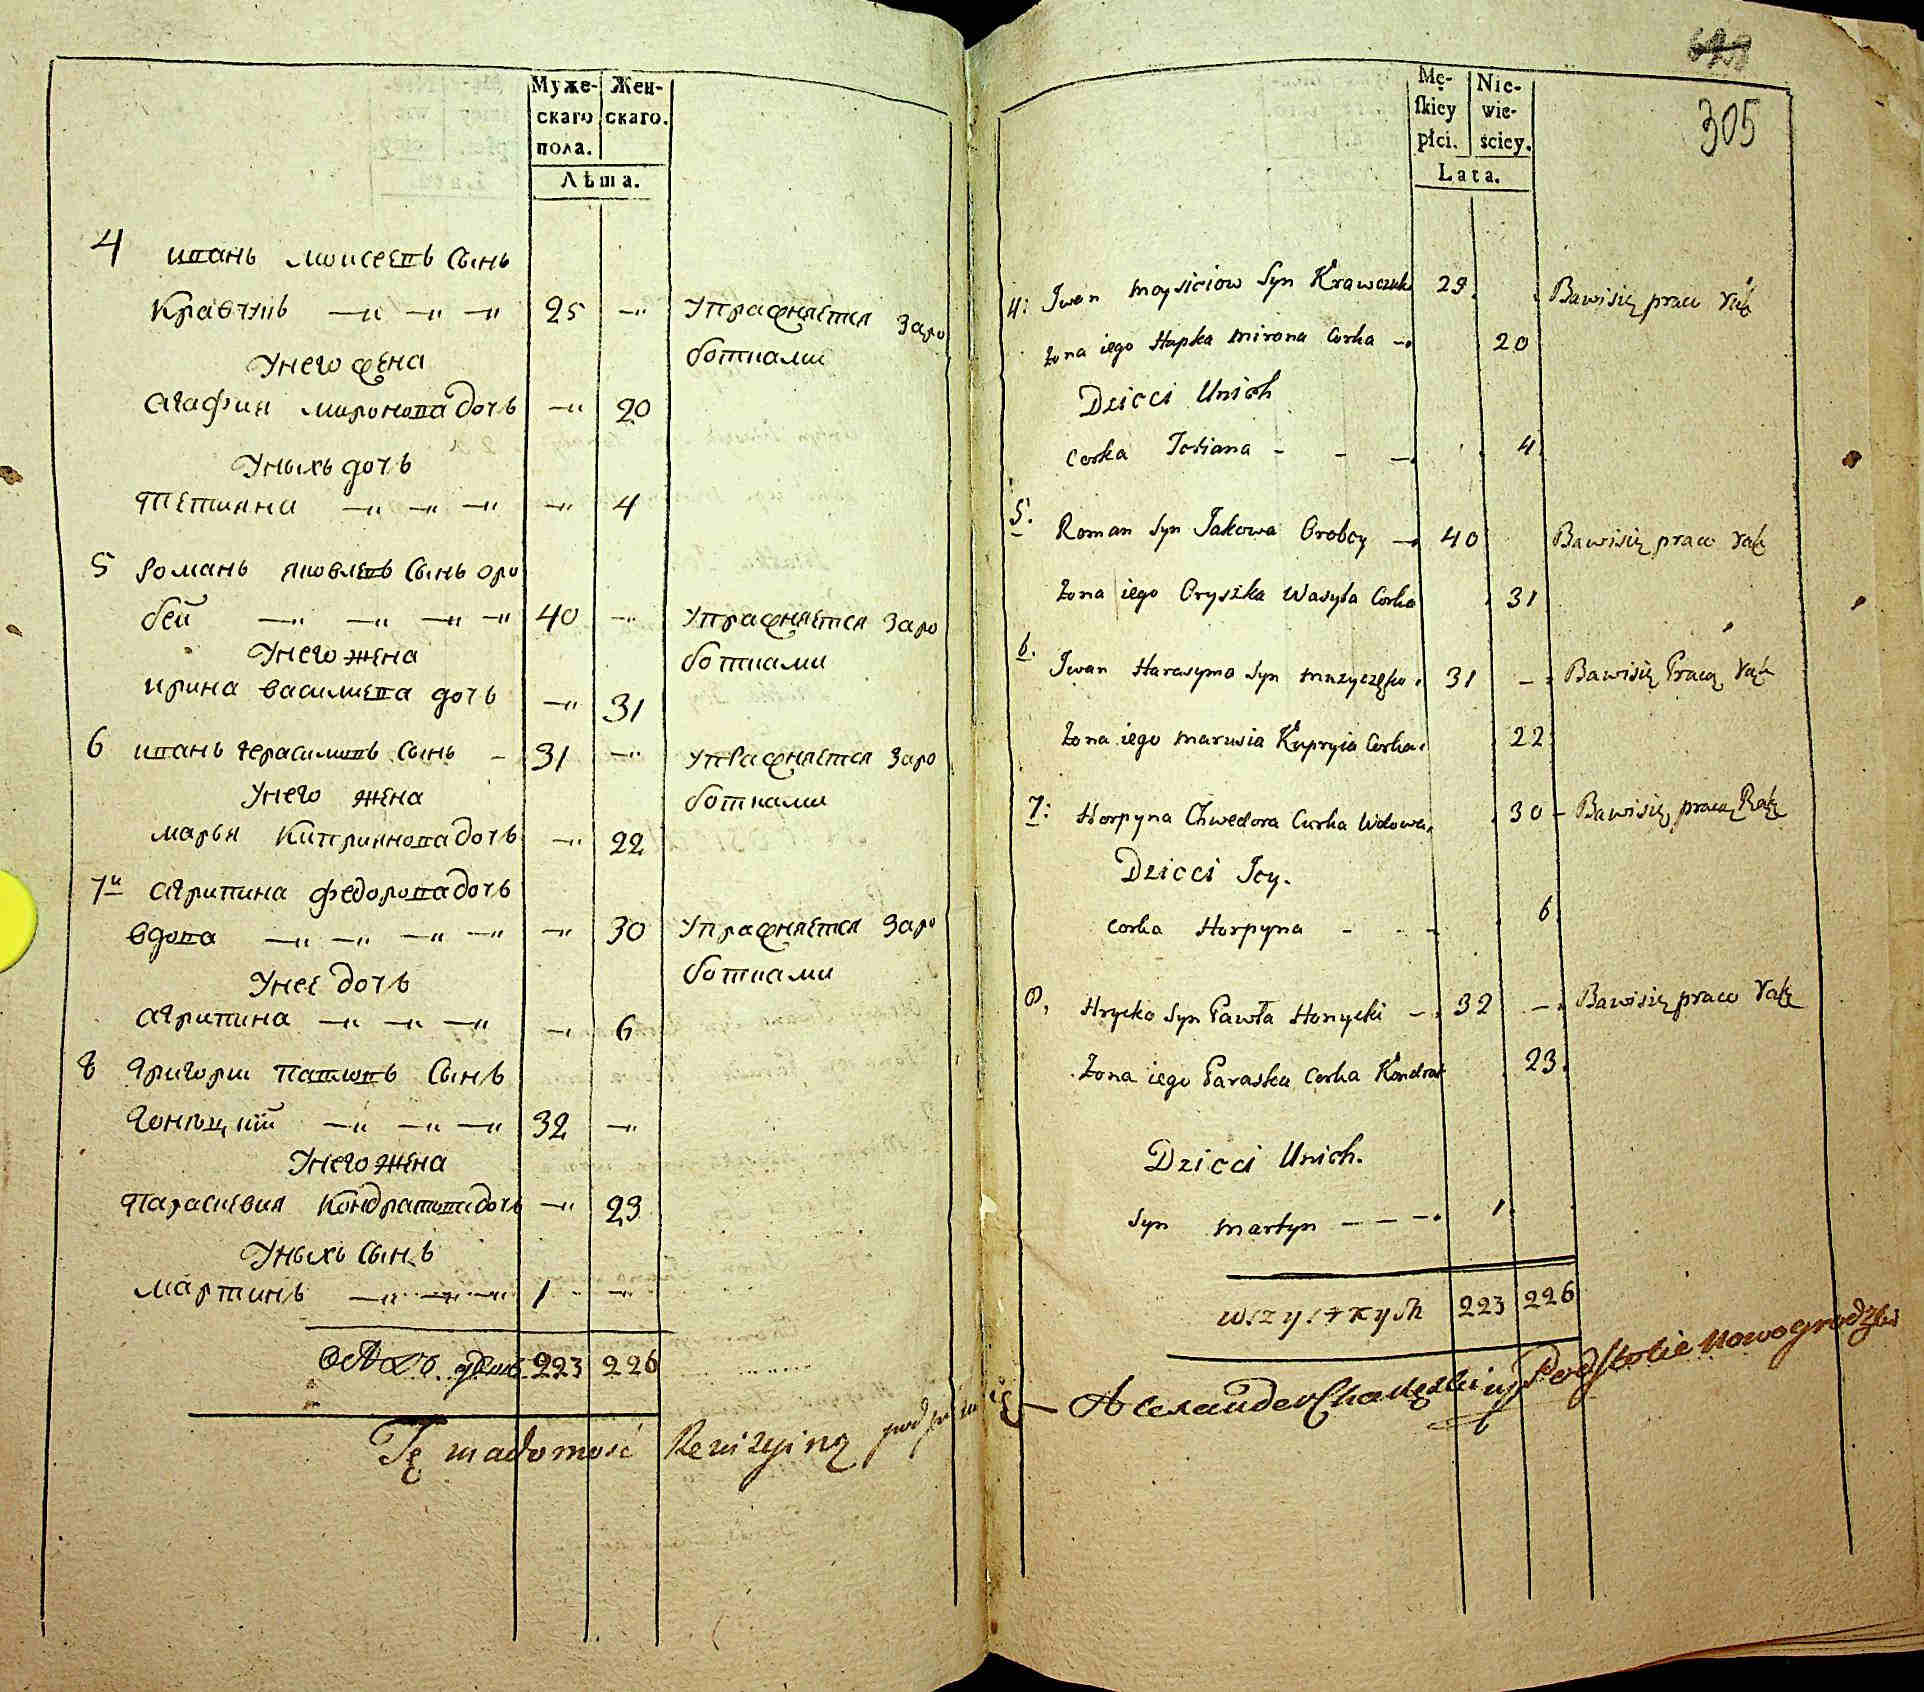 Муже-
скаго
пола.
Жен-
скаго.
Лѣта.
4 иванъ моисеевъ сынъ
Кравчукъ 25
Упражняется заро
ботками
Унего жена
агафия миронова дочь 20
Уныхъ дочь
Тетияна 4
5 романъ яковлевъ сынъ оро
бей 40
Упражняется заро
ботками
Унего жена
ирина василиева дочь 31
6 иванъ герасимовъ сынъ 31
Упражняется заро
ботками
Унего жена
марья Киприянова дочь 22
7 агрипина федорова дочь
вдова 30
Упражняется заро
ботками
Унее дочь
агрипина 6
8 григории павловъ сынъ
гоницкий 32
Унего жена
параскевия Кондратова дочь 23
Уныхъ сынъ
мартинъ 1
223 226
Tę wiadomość Rewizyiną
305
Mę-
ſkiey
płci.
Nie-
wie-
ściey.
Lata.
4: Iwan moysiciow Syn Krawczuk 29 Bawisię praco Rąk
żona iego Hapka mirona Corka 20
Dzieci Unich
corka Tetiana 4
5. Roman Syn Jakowa Orobey 40 Bawisię praco Rąk
żona iego Oryszka Wasyla Corka 31
6. Iwan Harasyma Syn 31 Bawisię Pracą Rąk
żona iego marusia Kupryia Corka 22
7: Horpyna Chwedora Curka Wdowa 30 Bawisię pracą Rąk
Dzieci Jey.
corka Horpyna 6
8. Hryćko Syn Pawła Honycki 32 Bawisię praco Rąk
Żona iego Paraska Corka Kondrat 23
Dzieci Unich.
Syn martyn 1
wszystkych 223 226
Podstolic Nowogrodzki